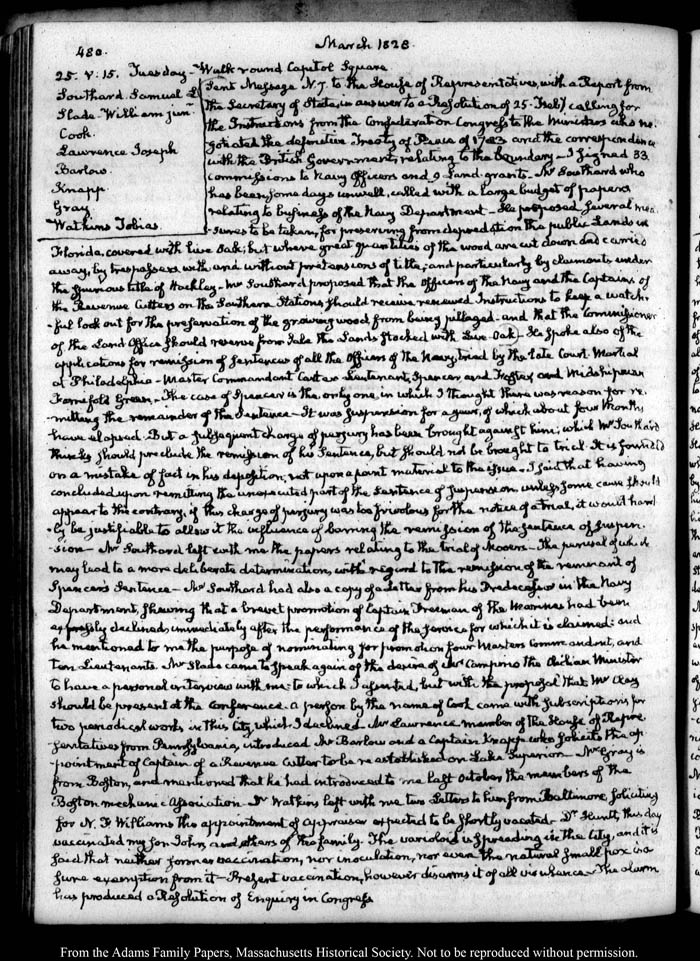 480.
March 1828.
25. V:15. Tuesday - Walk round Capitol Square
Southard Samuel L
Slade - William junr
Cook.
Lawrence Joseph
Barlow.
Knapp.
Gray.
Watkins Tobias.
Sent Message N. 7. to the House of Representatives, with a Report from
the Secretary of State, in answer to a Resolution of 25. Feby calling for
the Instructions from the Confederation Congress to the Ministers who ne-
gotiated the definitive Treaty of Peace of 1783 and the correspondence
with the British Government, relating to the boundary - I signed 33
commissions to Navy Officers and 9 Land grants. Mr Southard who
has been some days unwell, called with a large budget of papers
relating to business of the Navy Department - He proposed several mea-
-sures to be taken, for preserving from depredation the public Lands in
Florida, covered with live Oak; but where great quantities of the wood are cut down and carried
away, by trespassers with and without pretensions of title, and particularly by claimants under
the spurious title of Hackley - Mr Southard proposed that the Officers of the Navy and the Captains of
the Revenue Cutters on the Southern Stations should receive renewed Instructions to keep a watch-
-ful look out for the preservation of the growing wood from being pillaged - and that the Commissioner
of the Land Office should reserve from sale the Lands stocked with Live-Oak - He spoke also of the
applications for remission of sentences of all the Officers of the Navy, tried by the late Court Martial
at Philadelphia - Master Commandant Carter Lieutenants, Spencer and and Midshipman
Farnifold Green. - The case of Spencer is the only one, in which I thought there was reason for re-
-mitting the remainder of the Sentence - It was suspension for a year, of which about four Months
have elapsed. But a subsequent charge of perjury has been brought against him; which Mr Southard
thinks should preclude the remission of his Sentence, but should not be brought to trial. It is founded
on a mistake of fact in his deposition, not upon a point material to the issue - I said that having
concluded upon remitting the unexecuted part of the Sentence of suspension unless some cause should
appear to the contrary, if this charge of perjury was too frivolous for the notice of a trial, it would hard-
-ly be justifiable to allow it the influence of barring the remission of the sentence of suspen-
-sion - Mr Southard left with me the papers relating to the trial of Moores - The perusal of which
may lead to a more deliberate determination, with regard to the remission of the remnant of
Spencer's Sentence - Mr Southard had also a copy of a Letter from his Predecessor in the Navy
Department, shewing that a brevet promotion of Captain Freeman of the Marines had been
expressly declined, immediately after the performance of the service for which it is claimed: and
he mentioned to me the purpose of nominating for promotion four Masters Commandant, and
ten Lieutenants. Mr Slade came to speak again of the desire of Mr Campino the Chilian Minister
to have a personal interview with me - to which I assented, but with the proposal that Mr Clay
should be present at the conference - a person by the name of Cook came with subscriptions for
two periodical works in this City, which I declined - Mr Lawrence member of the House of Repre-
sentatives from Pennsylvania, introduced Mr Barlow and a Captain Knapp who solicits the ap-
pointment of Captain of a Revenue Cutter to be re-established on Lake Superior - Mr Gray is
from Boston, and mentioned that he had introduced to me last October the members of the
Boston mechanic Association - Dr Watkins left with me two Letters to him from Baltimore soliciting
for N. F. Williams the appointment of appraiser expected to be shortly vacated - Dr Huntt this day
vaccinated my son John, and others of the family. The varioloid is spreading in the City, and it is
said that neither former vaccination, nor inoculation, nor even the natural small pox is a
sure exemption from it - Present vaccination, however disarms it of all virulence - The alarm
has produced a Resolution of Enquiry in Congress
From the Adams Family Papers, Massachusetts Historical Society. Not to be reproduced without permission.